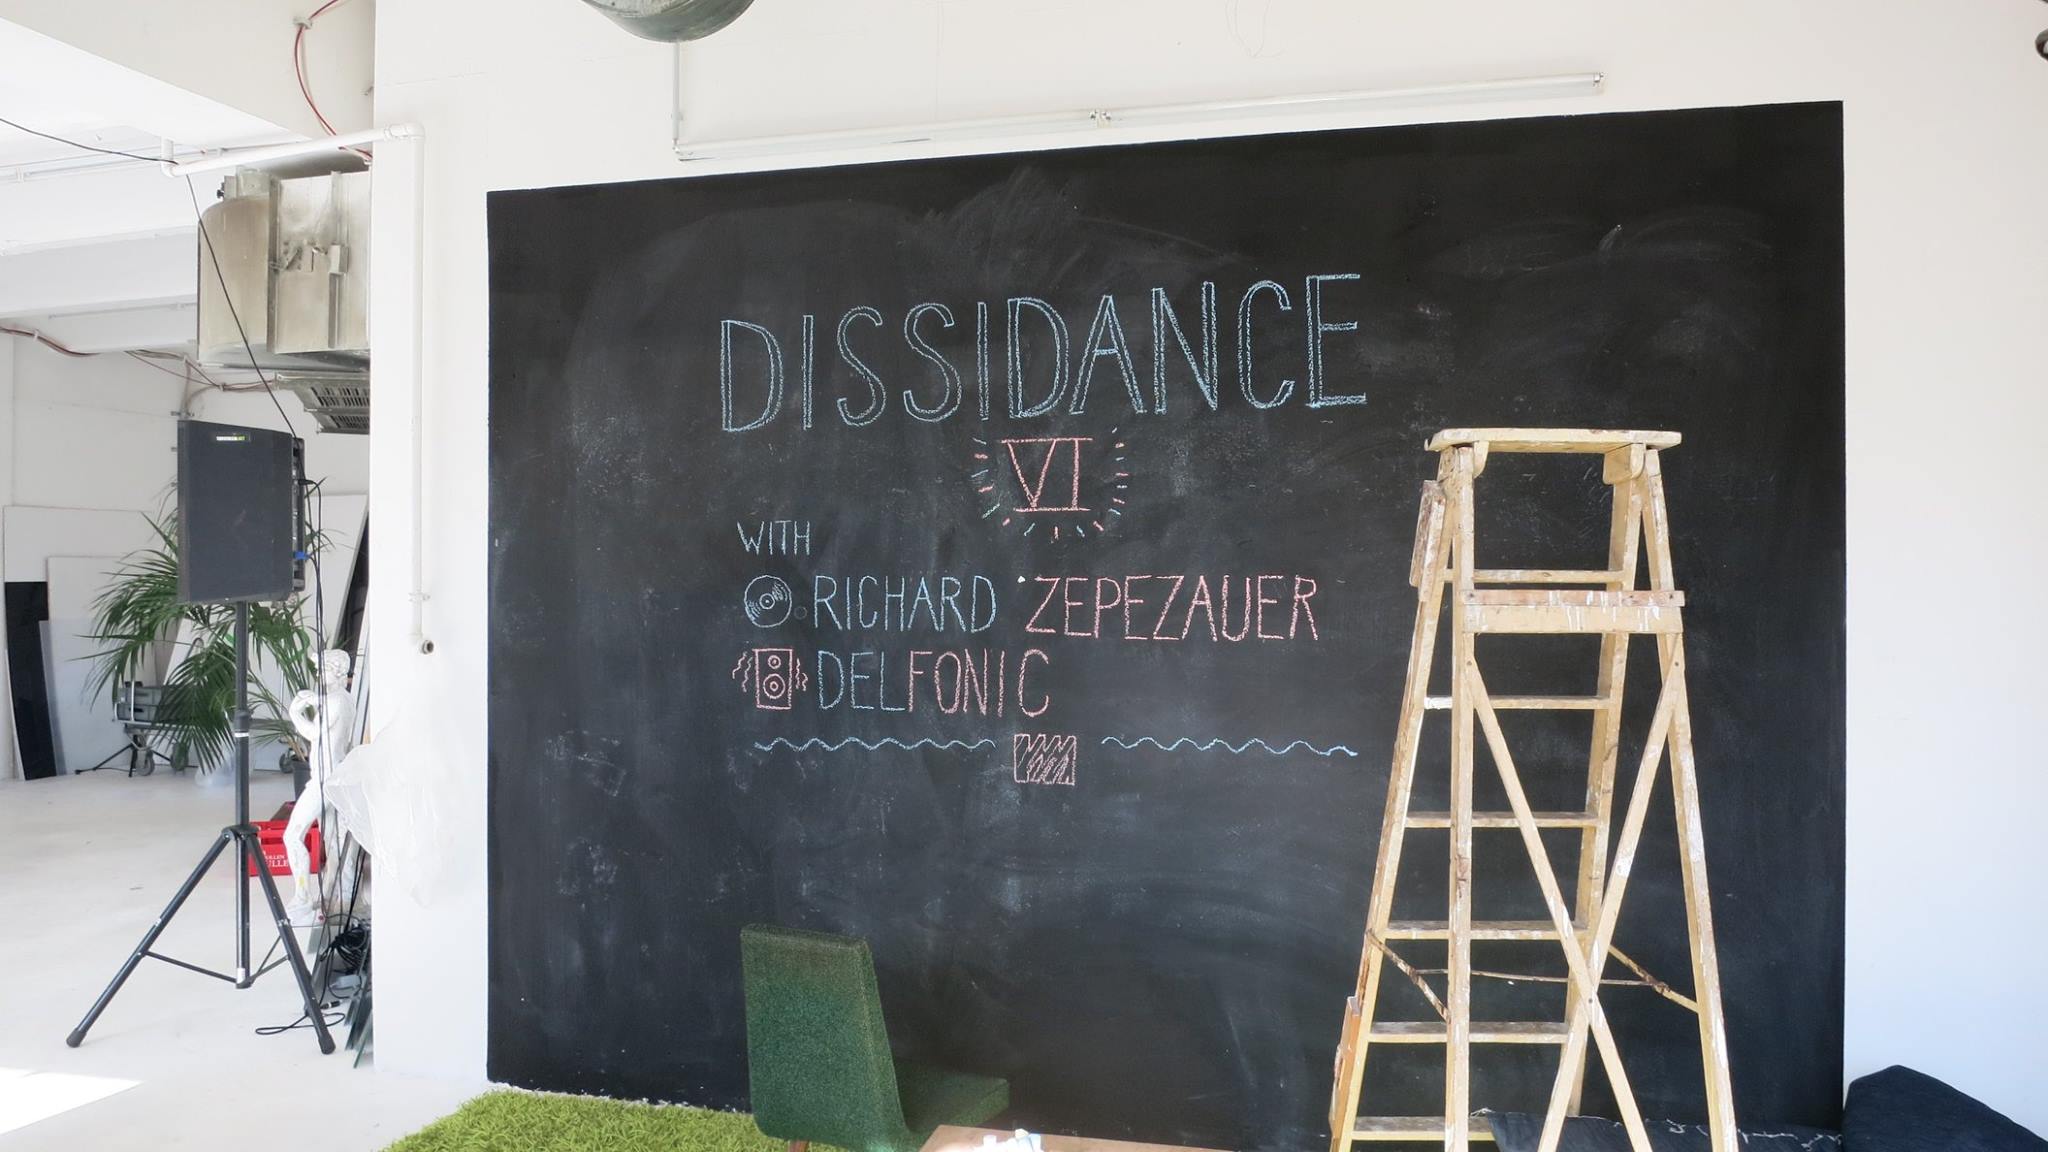 DISSIDANCE
VI
WITH
RICHARD ZEPEZAUER
DELFONIC